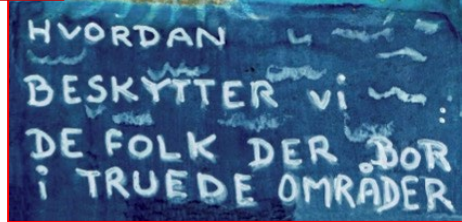 HVORDAN
BESKYTTER Vi
DE FOLK DER BOR
i TRUEDE OMRÅDER